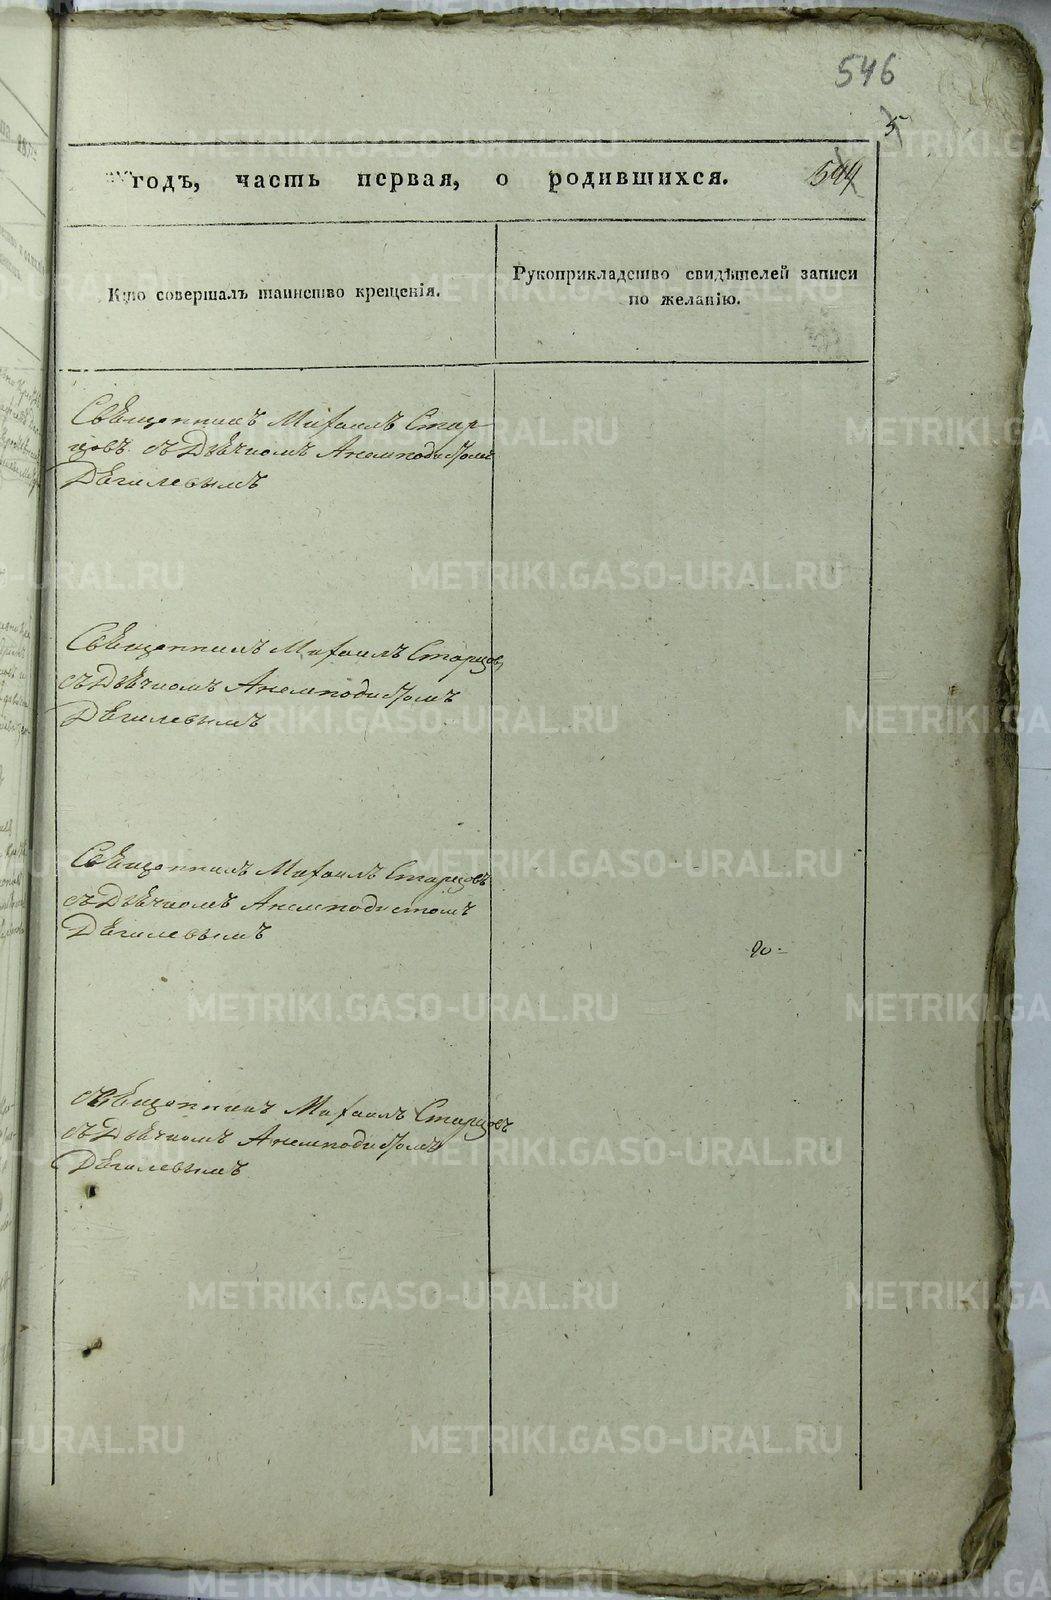 546
5
годъ, часть первая, о родившихся.
544
Кто совершалъ таинство крещенія.
Рукоприкладство свидѣтелей записи
по желанію.
Священникъ Михаилъ Стар-
цовъ съ Дьячкомъ Анемподистомъ
Дѣгилевымъ
Священникъ Михаилъ Старцовъ
съ Дьячкомъ Анемподистомъ
Дѣгилевымъ
Священникъ Михаилъ Старцовъ
съ Дьячкомъ Анемподистомъ
Дѣгилевымъ
Священникъ Михаилъ Старцовъ
съ Дьячкомъ Анемподистомъ
Дѣгилевымъ
METRIKI.GASO-URAL.RU